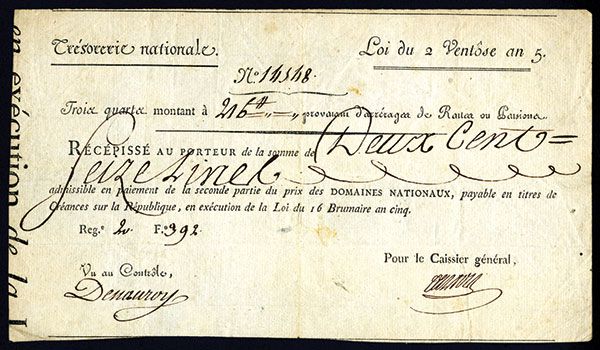 Trésorerie nationale.
Loi du 2 Ventôse an 5.
N.º 14548.
Trois quarts montant à 216 ₶ „ = „ provenant d'arrérages de Rentes ou Pensions
RÉCÉPISSÉ AU PORTEUR de la somme de Deux Cent =
Seize Livres
admissible en paiement de la seconde partie du prix des DOMAINES NATIONAUX, payable en titres de
Créances sur la République, en exécution de la Loi du 16 Brumaire an cinq.
Reg.e 2. F.o 392
Vu au Contrôle,
Denauroy
Pour le Caissier général,
en exécution de la L